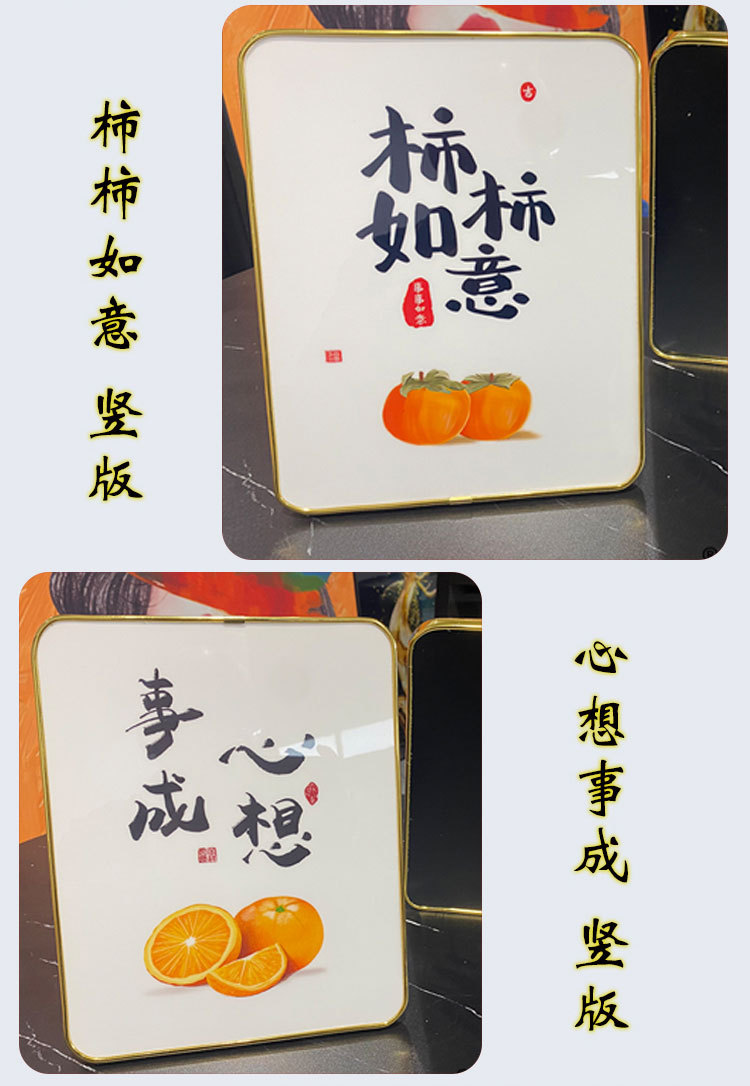 柿柿如意 竖版
吉
柿柿
如意
事事如意
心想
事成
心想事成 竖版
®